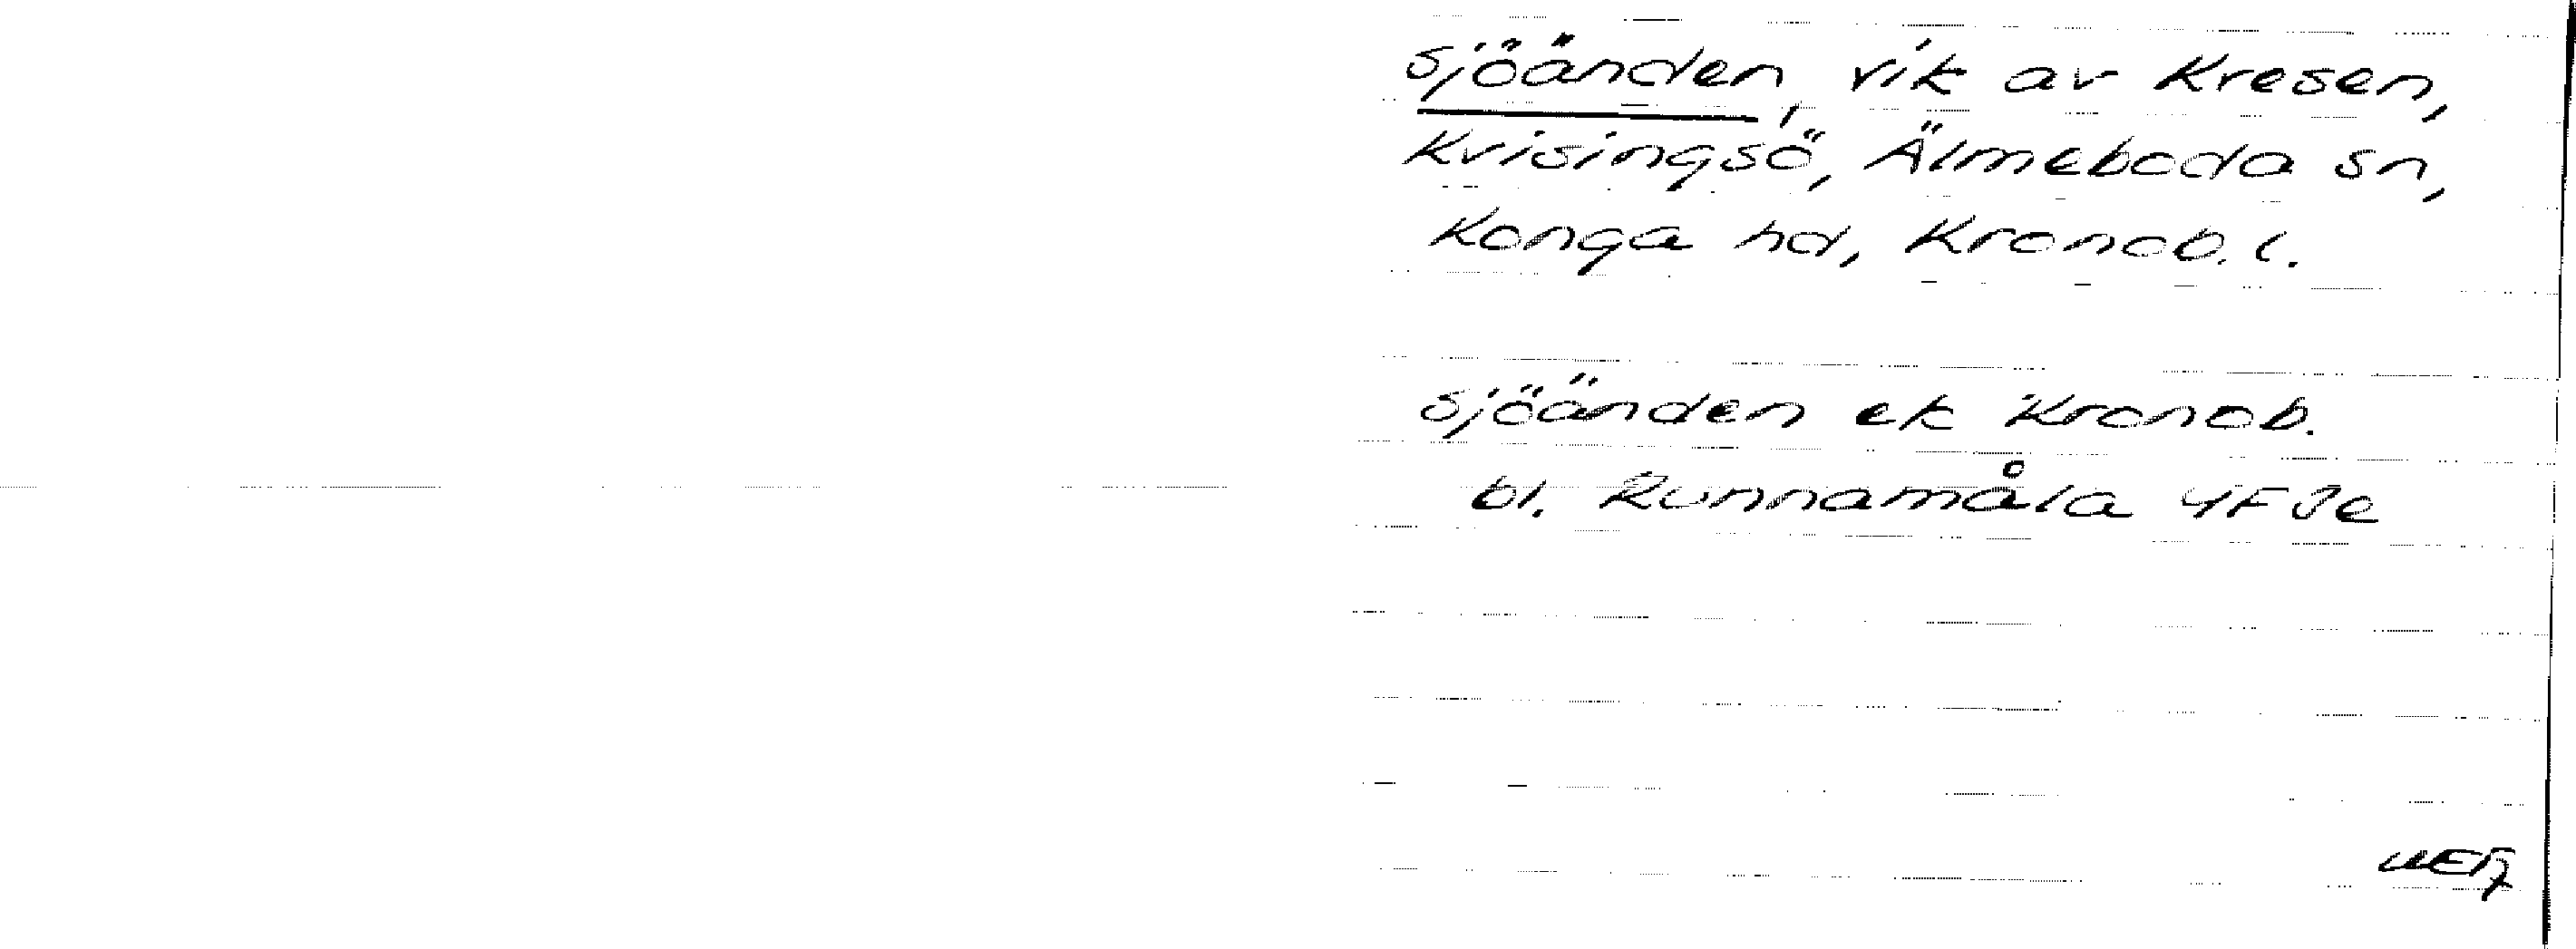 sjöänden, vik av Kresen,
Kvisingsö, Älmeboda sn,
Konga hd, Kronob. l.
sjöänden ek Kronob.
bl. Runnamåla 4F 3e